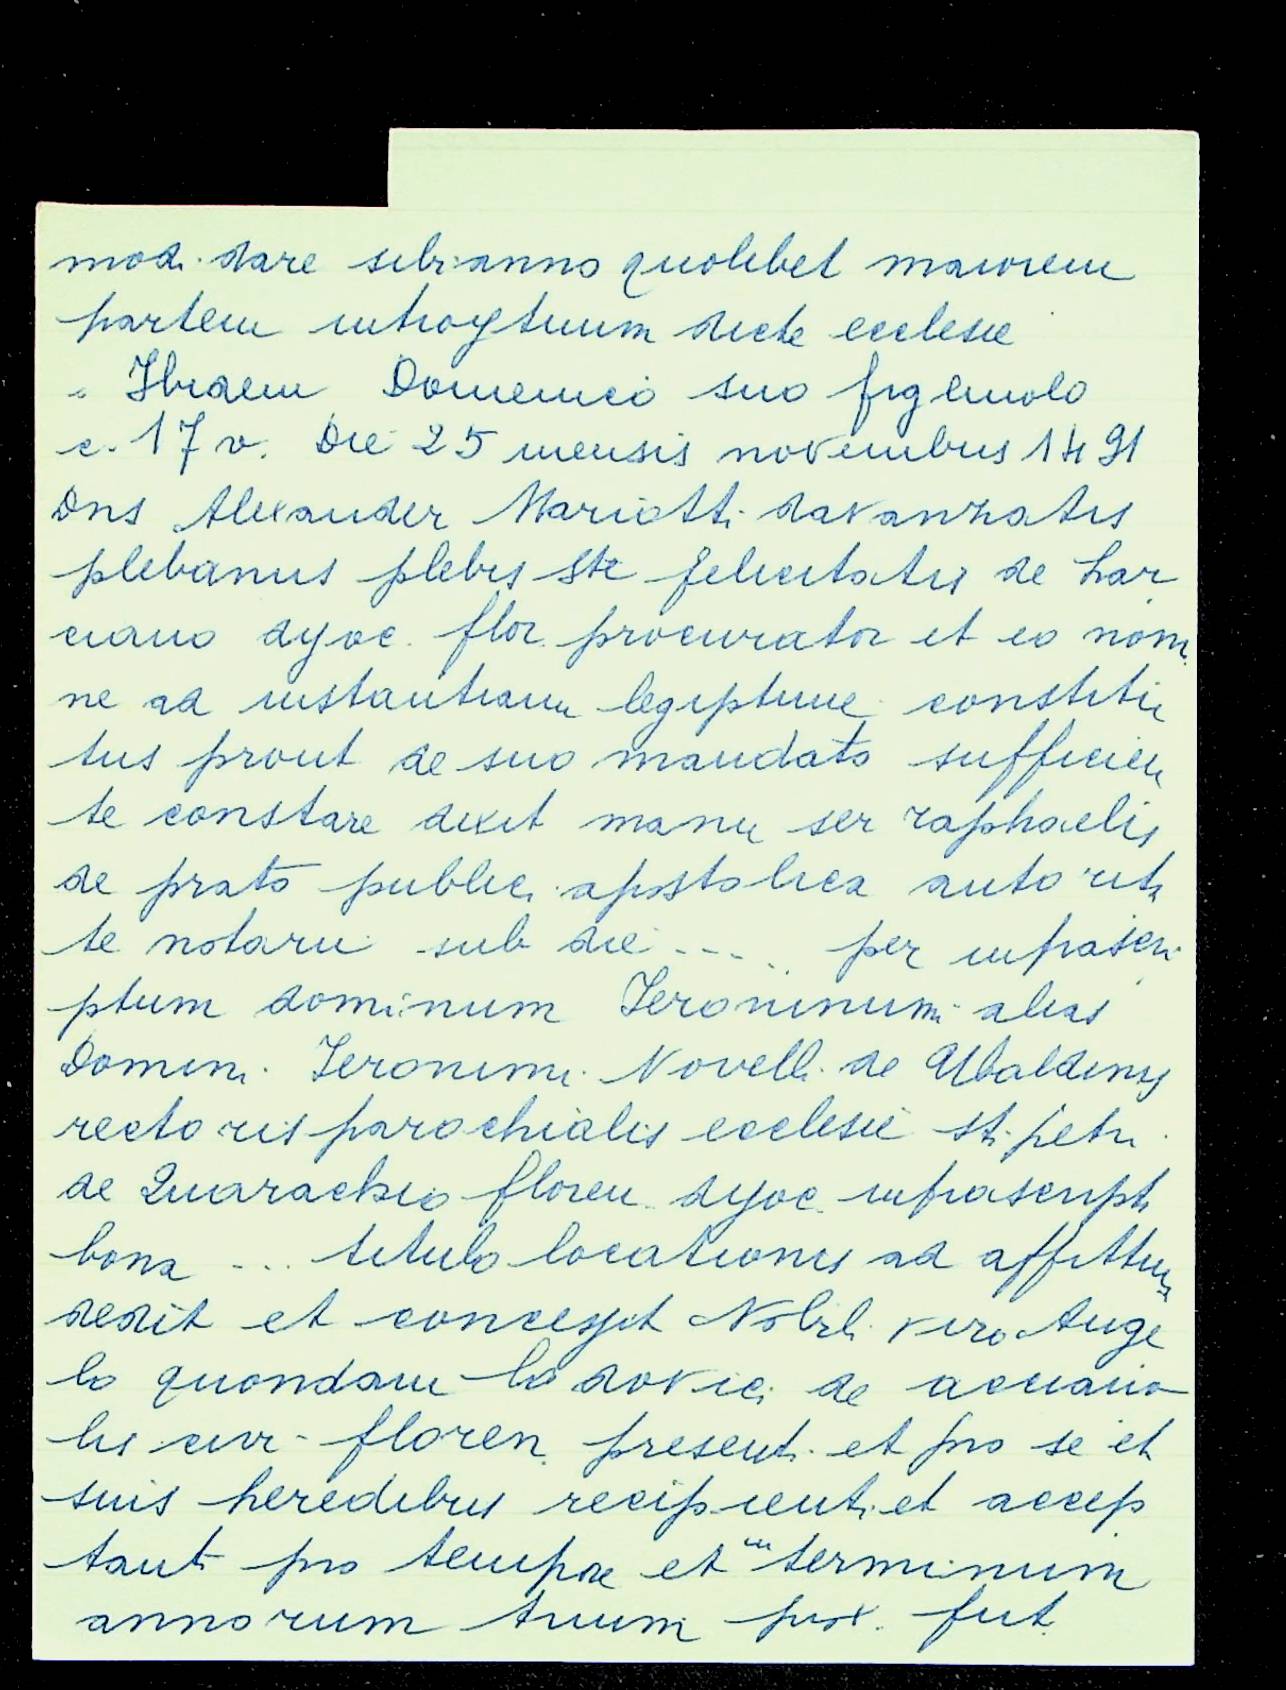 modi dare sibi anno quolibet maiorem
partem introytuum dicte ecclesie
Ibidem Domenico suo figliuolo
c. 17 v. Die 25 mensis novembris 1491
Dns Alexander Mariotti davanzatis
plebanus plebis Ste felicitatis de lar
ciano dyoc. flor. procurator et eo nomi
ne ad instantiam legiptime constitu
tus prout de suo mandato sufficien
te constare dixit manu ser raphaelis
de prato publici apostolica autorita
te notarii sub die .... per infrascri
ptum dominum Ieroninum alias
Domini Ieronimi Novelli de Ubaldinis
rectoris parochialis ecclesie sti petri
de Quarachio floren. dyoc. infrascripta
bona ... titulo locationis ad affittum
dedit et concessit Nobili viro Ange
lo quondam lodovici de acciaiuo
lis civi floren. presenti et pro se et
suis heredibus recipienti et accep
tanti pro tempore et in terminum
annorum trium prox. fut.